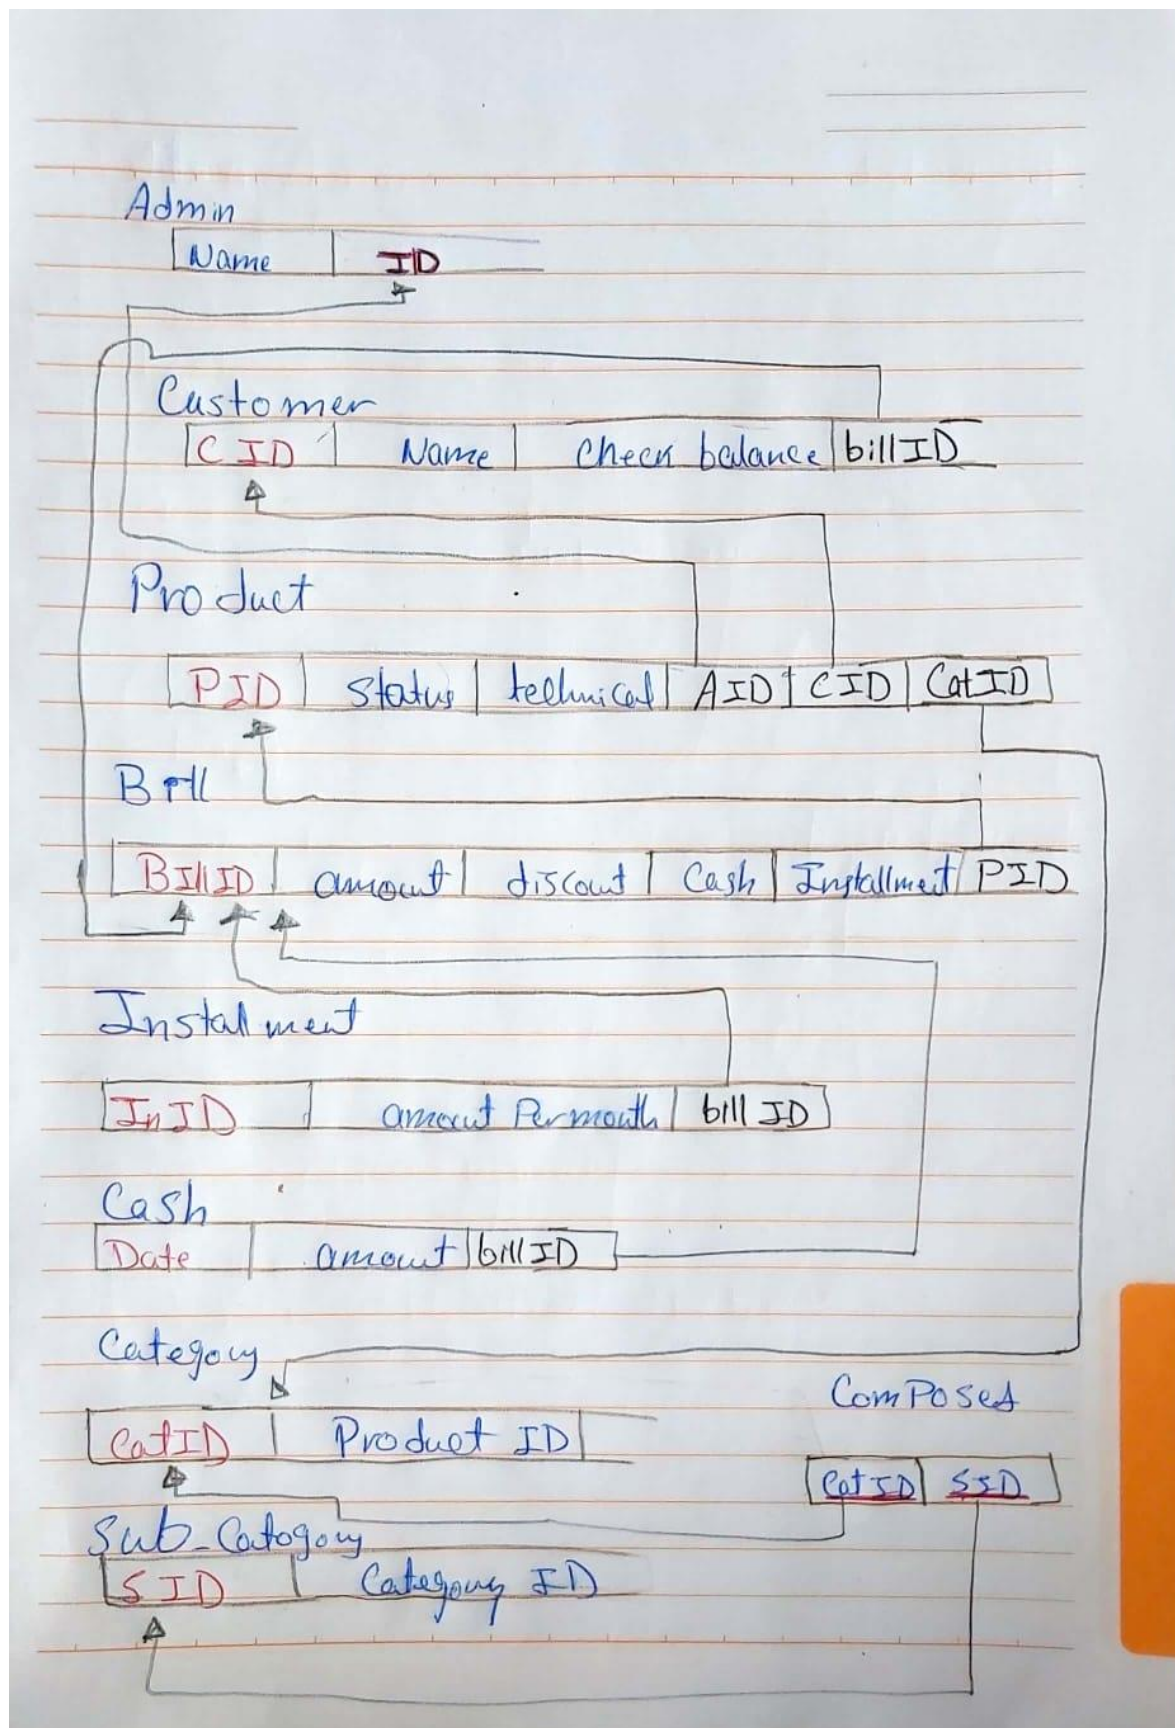 Admin
Name ID
Customer
CID Name Check balance billID
Product
PID Status technical AID CID CatID
Bill
BillID amount discount Cash Installment PID
Installment
InID amount Per month bill ID
Cash
Date amount billID
Category
CatID Product ID
ComPosed
CatID SID
Sub-Catogory
SID Category ID